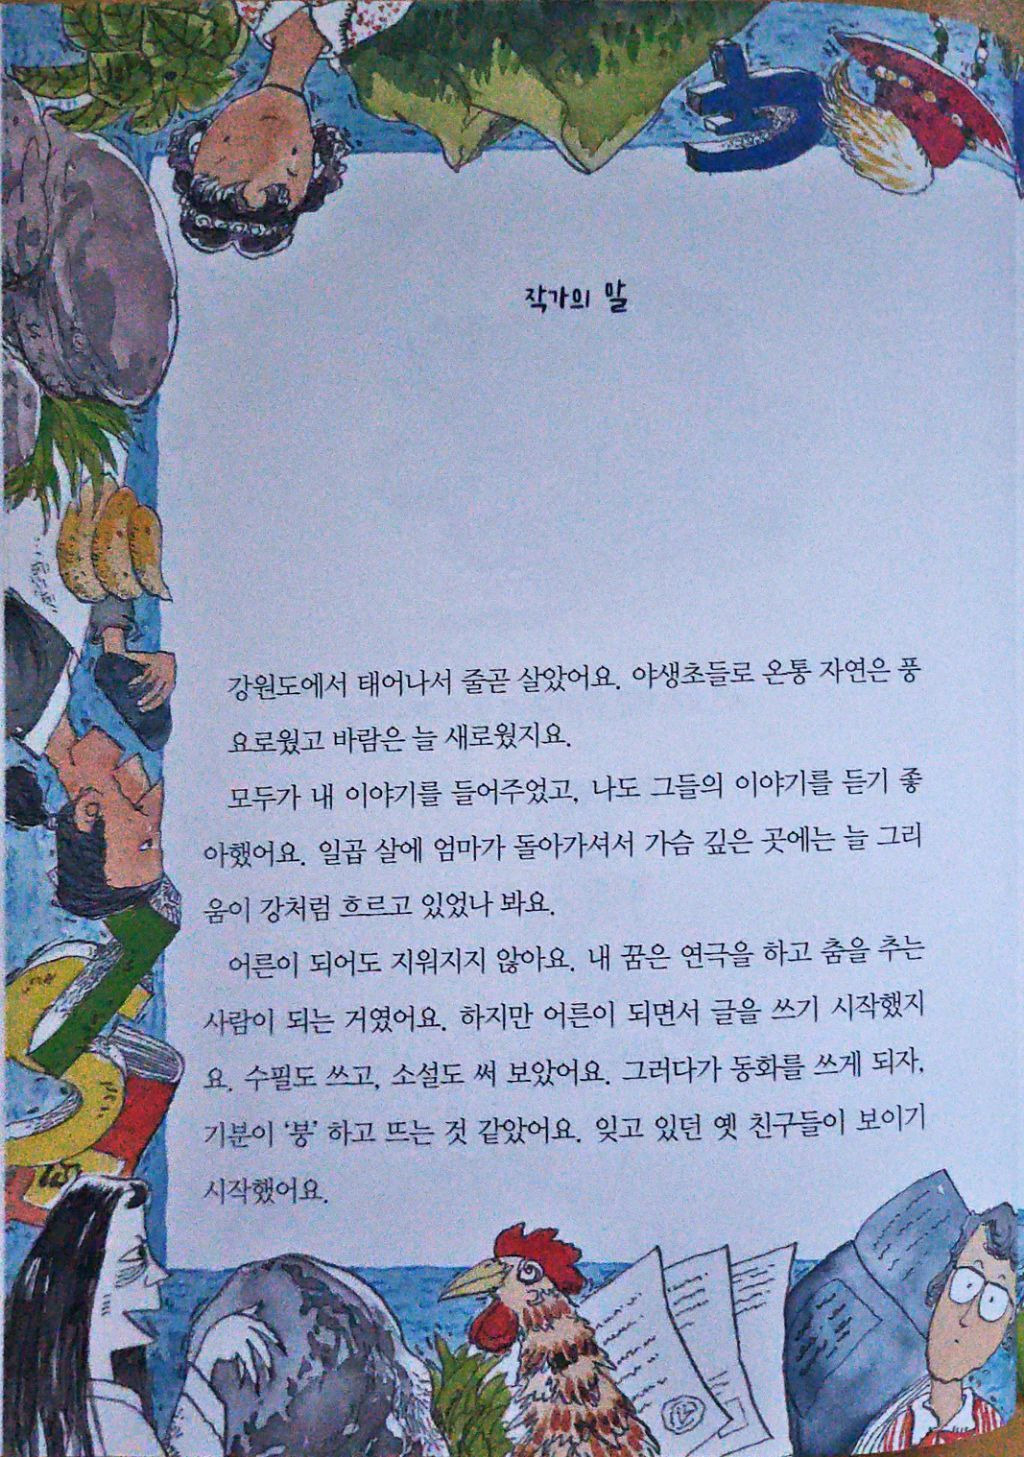 작가의 말
강원도에서 태어나서 줄곧 살았어요. 야생초들로 온통 자연은 풍
요로웠고 바람은 늘 새로웠지요.
모두가 내 이야기를 들어주었고, 나도 그들의 이야기를 듣기 좋
아했어요. 일곱 살에 엄마가 돌아가셔서 가슴 깊은 곳에는 늘 그리
움이 강처럼 흐르고 있었나 봐요.
어른이 되어도 지워지지 않아요. 내 꿈은 연극을 하고 춤을 추는
사람이 되는 거였어요. 하지만 어른이 되면서 글을 쓰기 시작했지
요. 수필도 쓰고, 소설도 써 보았어요. 그러다가 동화를 쓰게 되자,
기분이 ‘붕’ 하고 뜨는 것 같았어요. 잊고 있던 옛 친구들이 보이기
시작했어요.